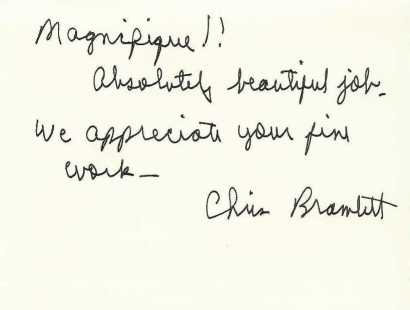 Magnifique!!
Absolutely beautiful job.
We appreciate your fine
work—
Chris Bramlett